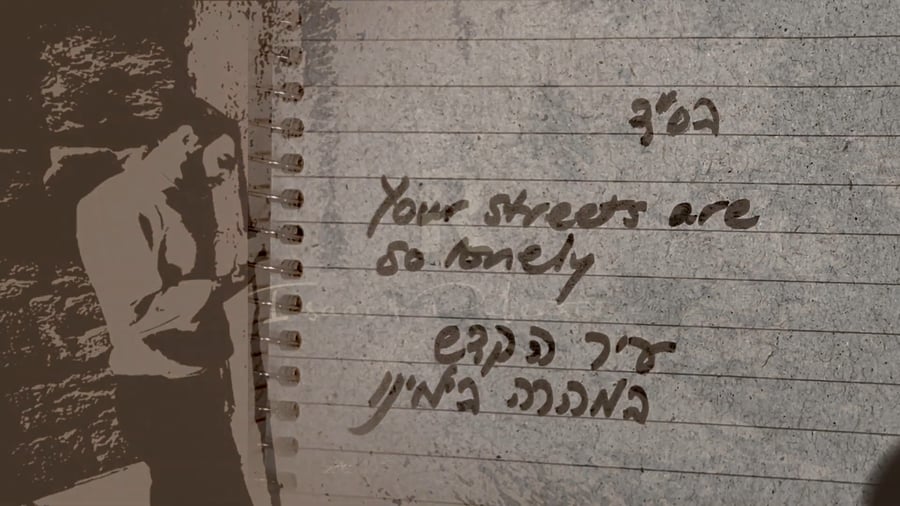 בס"ד
Your streets are
so lonely
עיר הקדש
במהרה בימינו